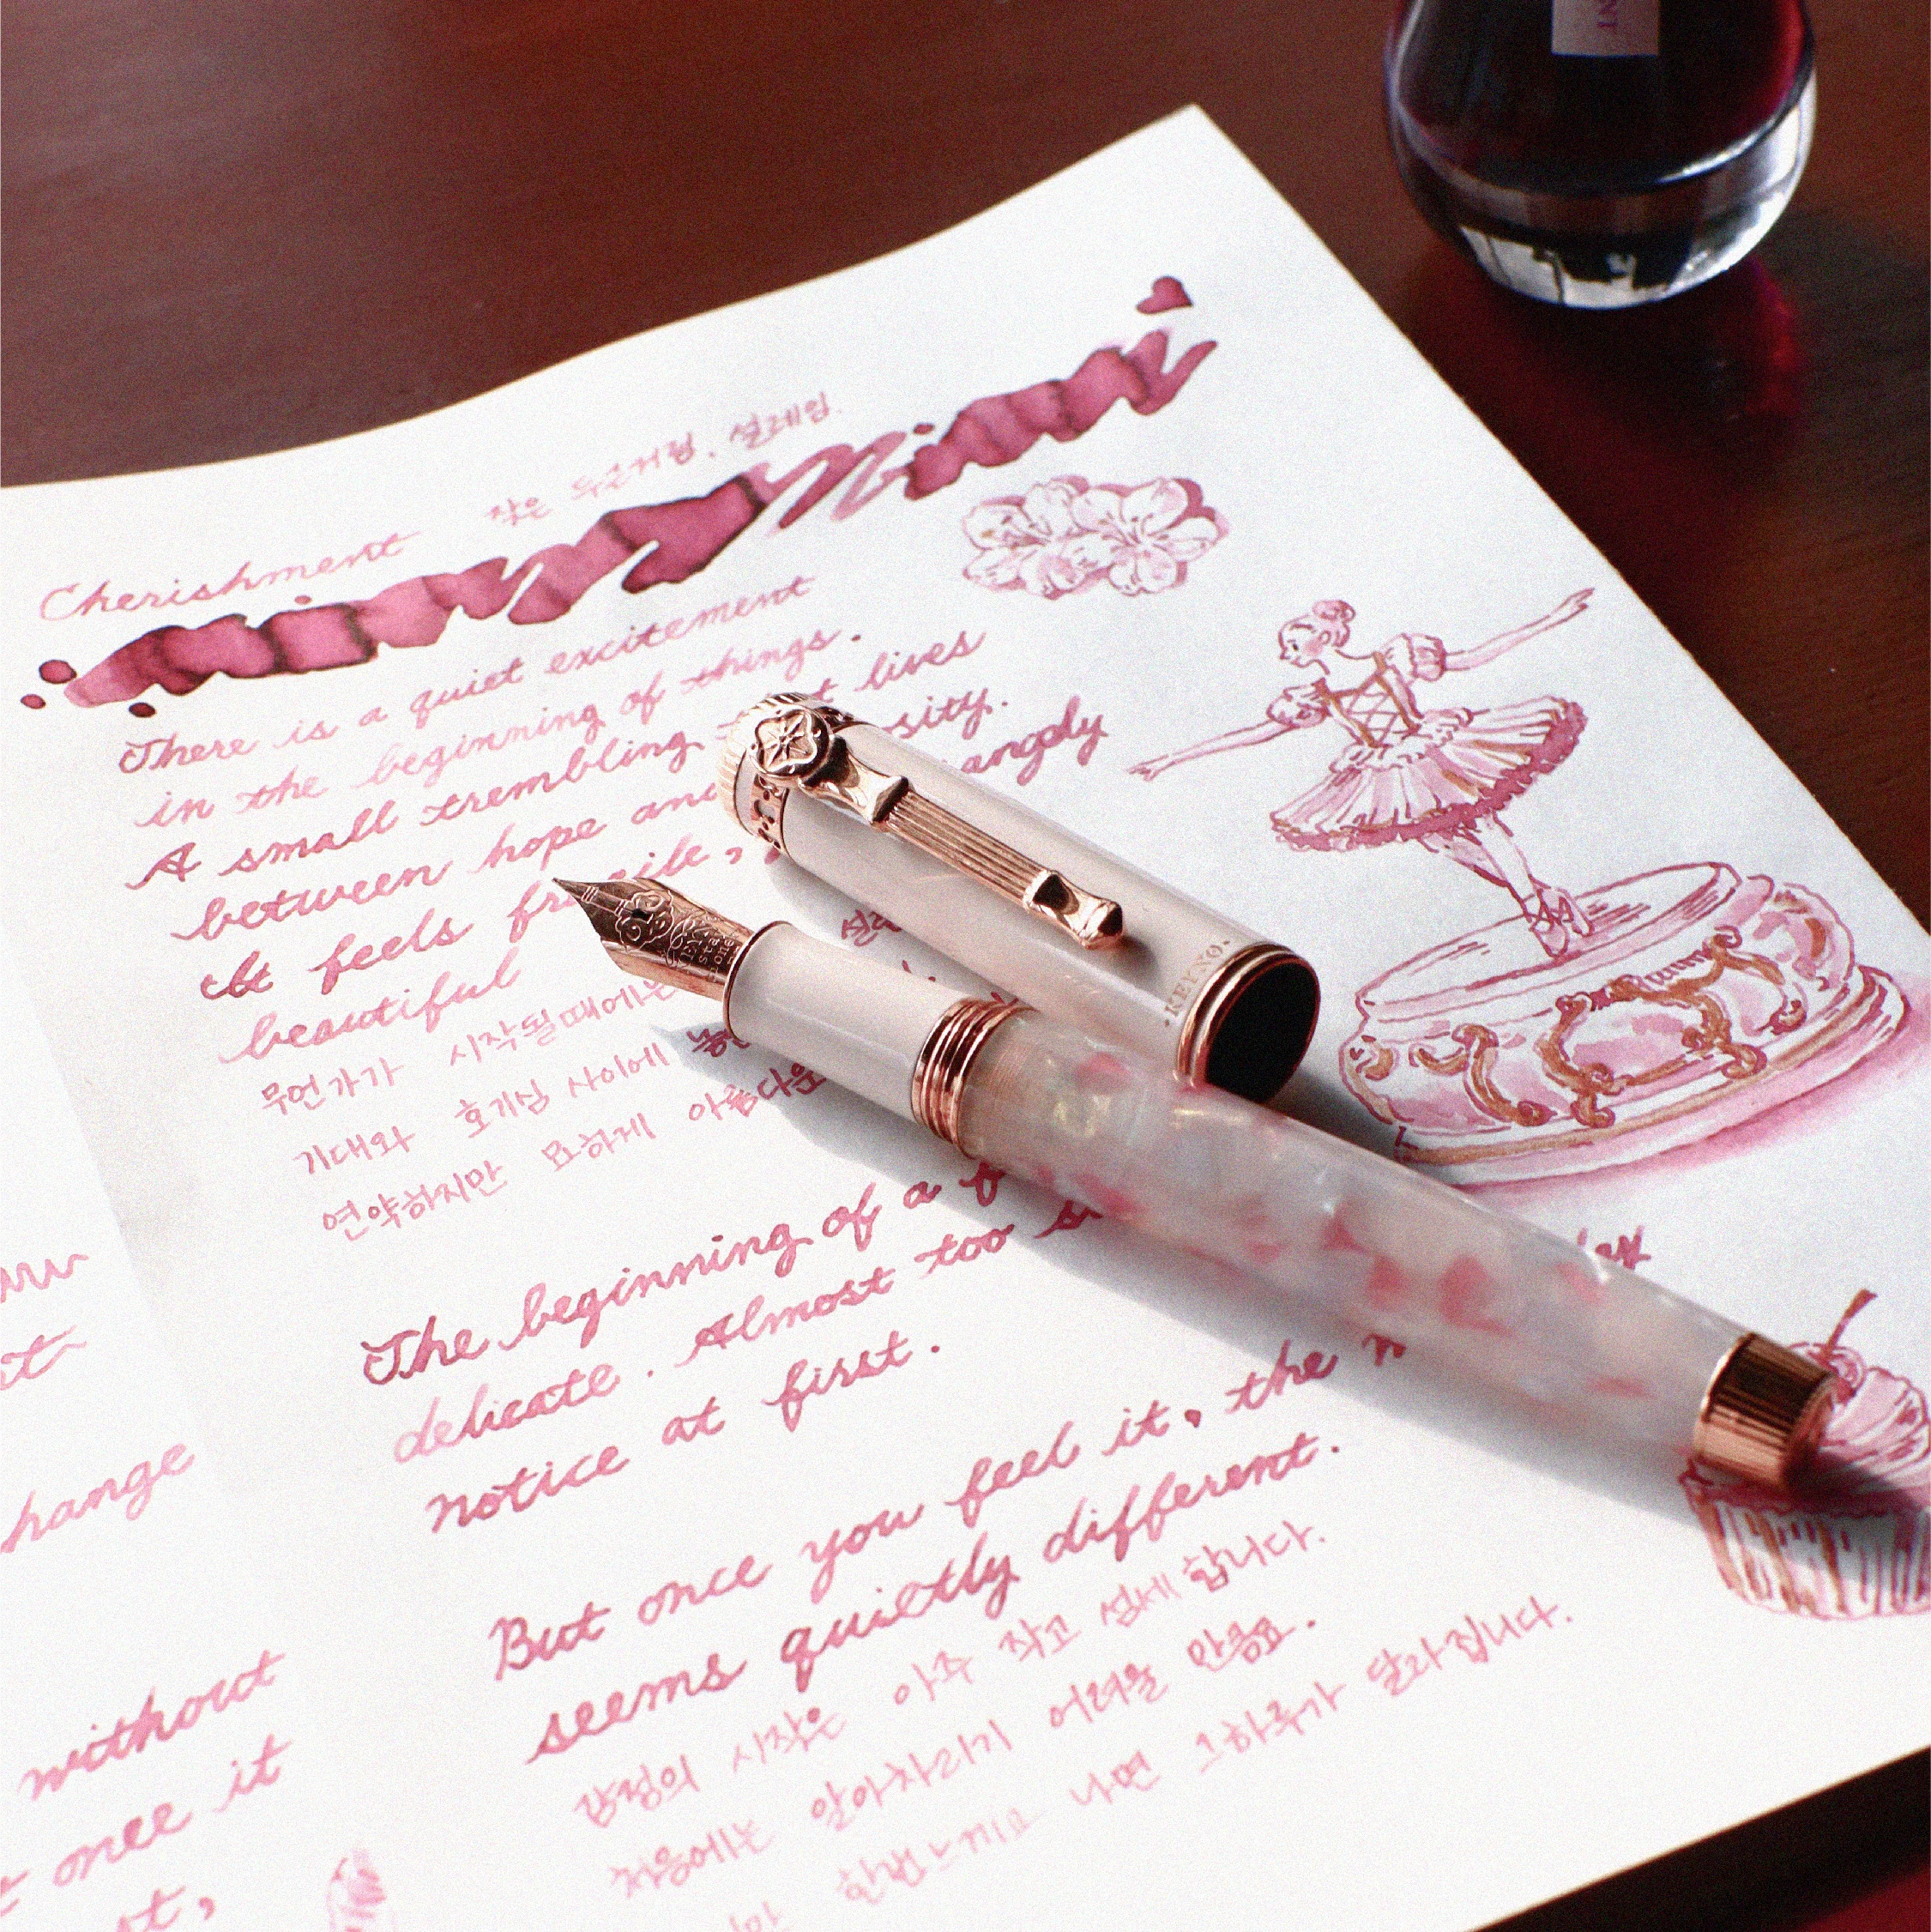 NT
Cherishment 작은 두근거림, 설레임.
There is a quiet excitement
in the beginning of things.
A small trembling lives
between hope and
It feels
beautiful
무언가가 시작될때에는
기대와 호기심 사이에
연약하지만 묘하게 아름다운
KEENO
The beginning of a
delicate. Almost too
notice at first.
But once you feel it, the
seems quietly different.
감정의 시작은 아주 작고 섬세합니다.
처음에는 알아차리기 어려울 만큼요.
한번 느끼고 나면 그하루가 달라집니다.
hange
without
once it